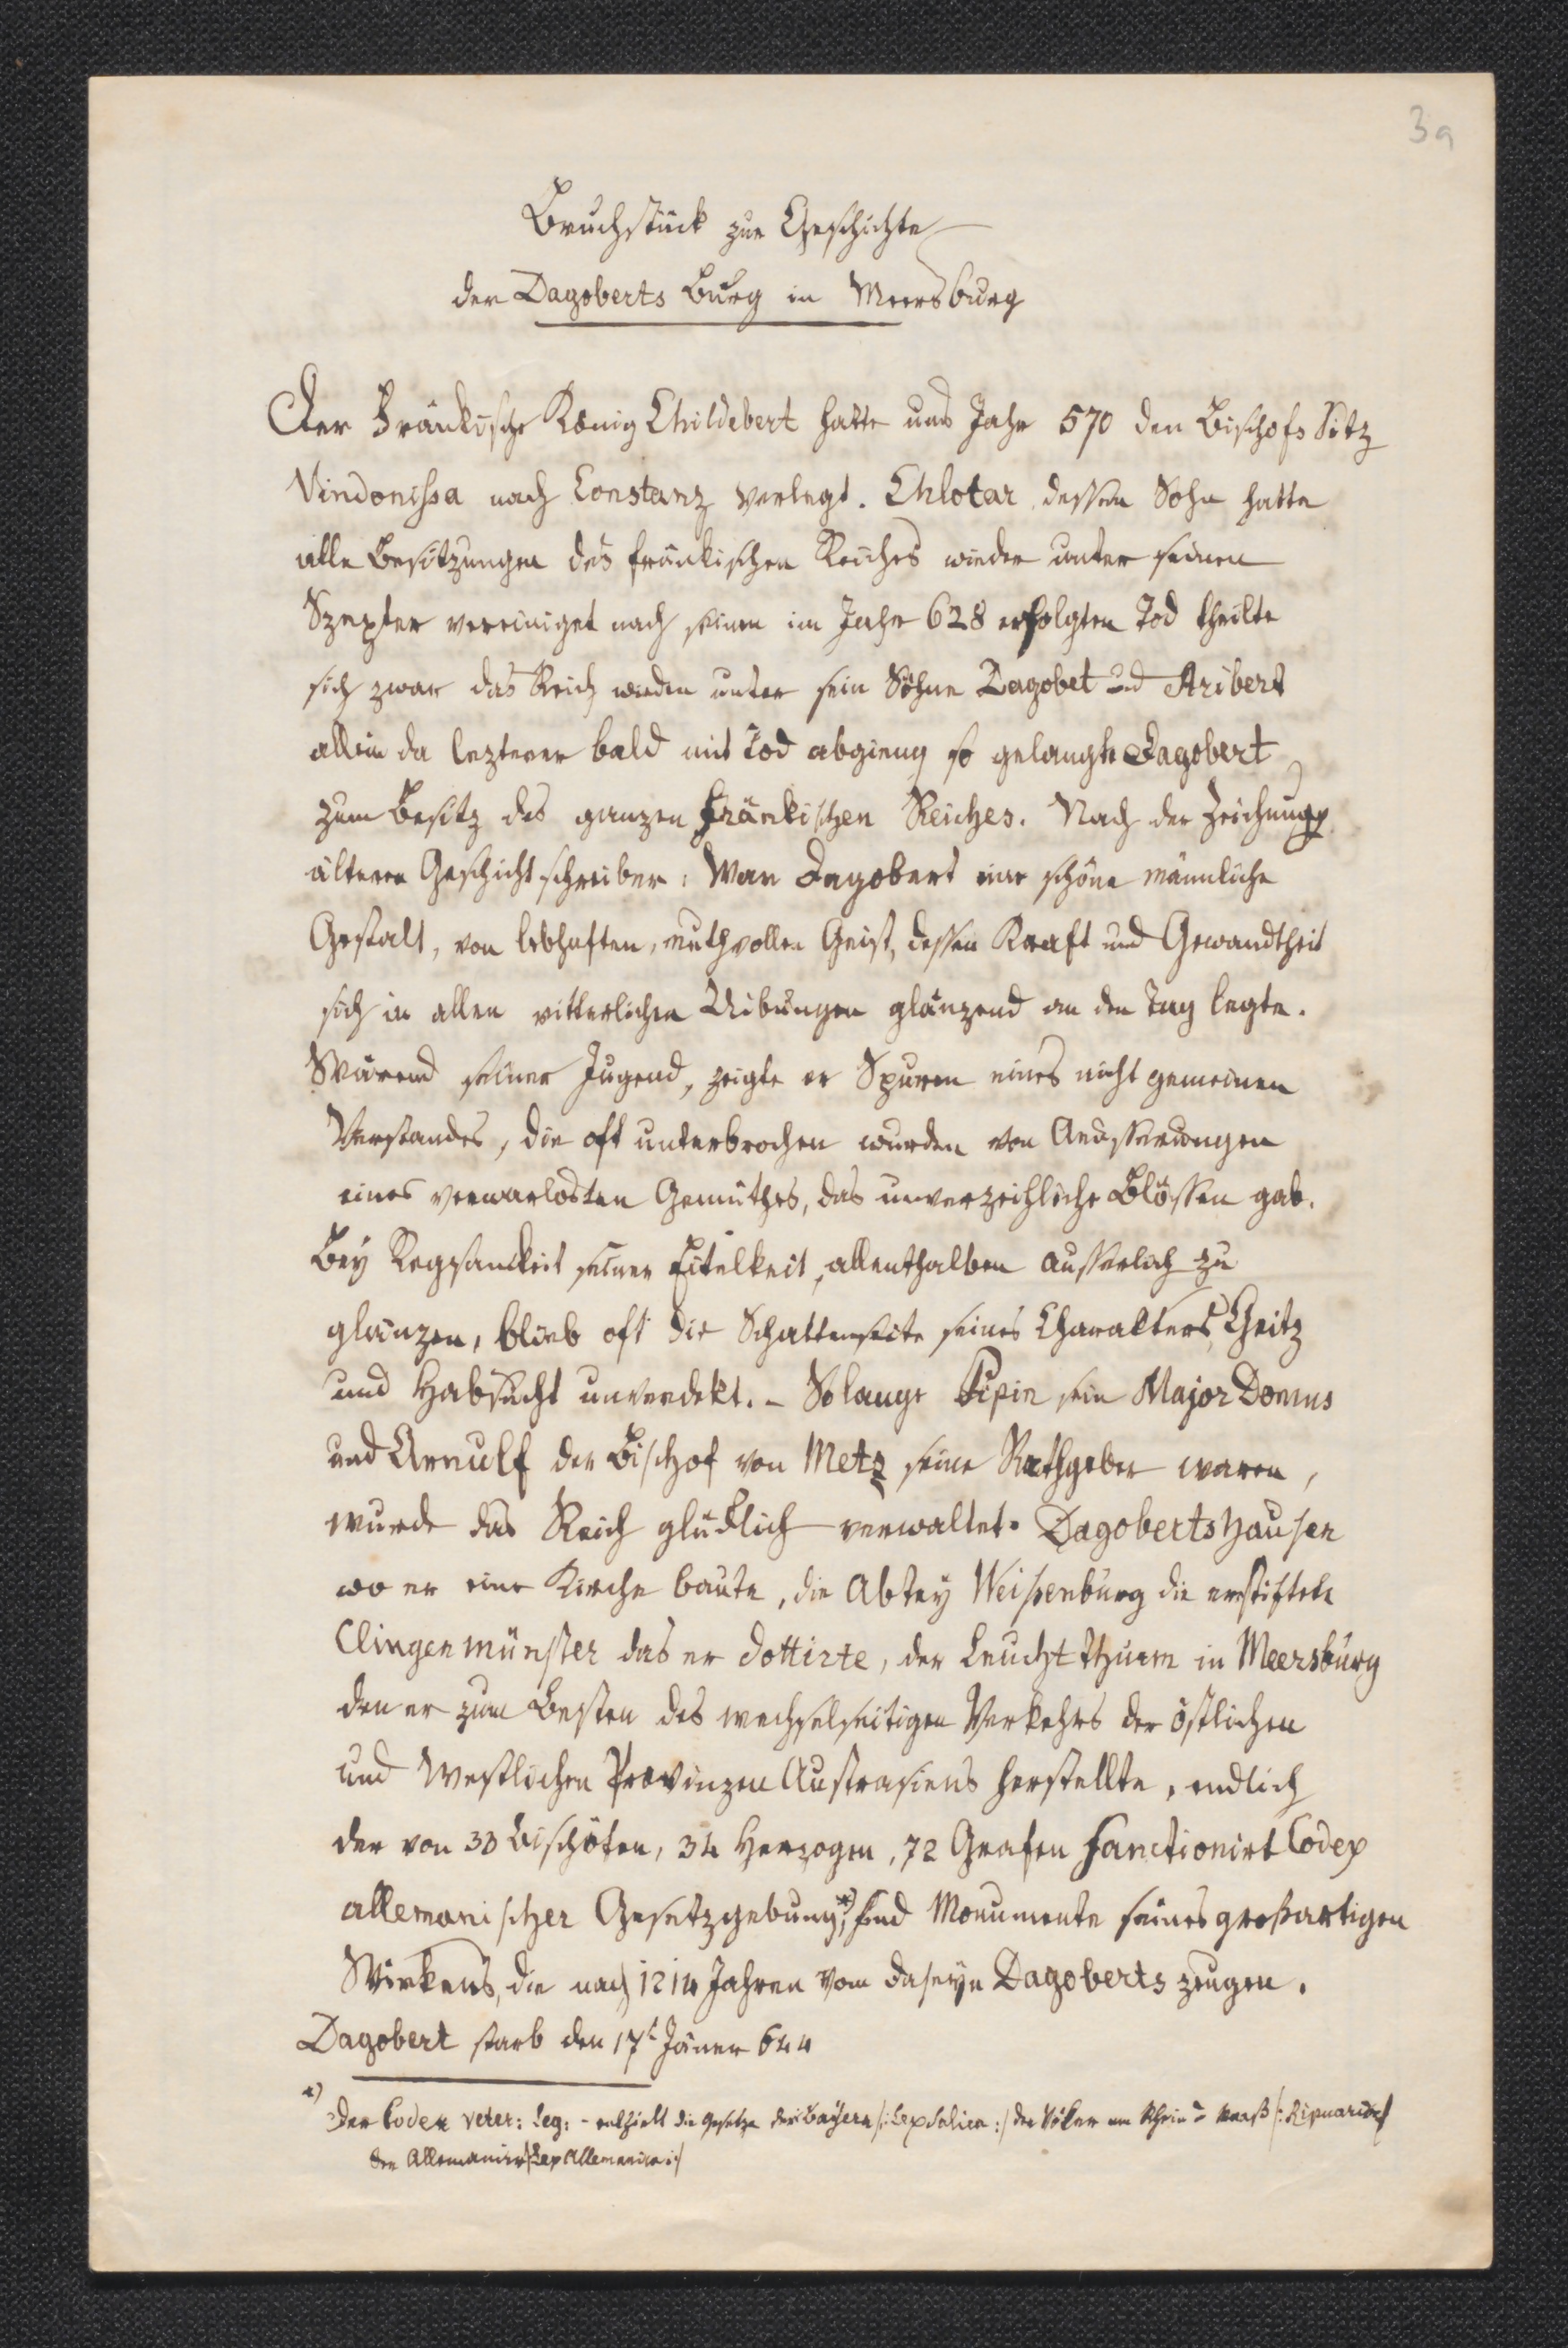 3a
Bruchstück zur Geschichte
der Dagoberts Burg in Meersburg
Der Fränkische König Childebert hatte ums Jahr 570 den Bischofs Sitz
Vindonissa nach Constanz verlegt. Chlotar dessen Sohn hatte
alle Besitzungen des fränkischen Reiches wieder unter seinen
Szepter vereiniget nach seinen im Jahr 628 erfolgten Tod theilte
sich zwar das Reich wieder unter sein Söhne Dagobet und Aribert
allein da lezterer bald mit Tod abgieng so gelangte Dagobert
zum Besitz des ganzen fränkischen Reiches. Nach der Zeichnung
älterer Geschichtschreiber: War Dagobert eine schöne männliche
Gestalt, von lebhaften, muthvollen Geist, dessen Kraft und Gewandtheit
sich in allen ritterlichen Uibungen glänzend an den Tag legte.
Wärend seiner Jugend, zeigte er Spuren eines nicht gemeinen
Verstandes, die oft unterbrochen wurden von Aeusserungen
eines verwarlosten Gemüthes, das unverzeihliche Blössen gab.
Bey Regsamkeit seiner Eitelkeit, allenthalben äusserlich zu
glänzen, blieb oft die Schattenseite seines Charakters Geitz
und Habsucht unverdekt. - Solange Pipin sein Major Domus
und Arnulf der Bischof von Metz seine Rathgeber waren,
wurde das Reich glücklich verwaltet. Dagobertshausen
wo er eine Kirche baute, die Abtey Weissenburg die er stiftete
Clingenmünster das er dottirte, der Leucht Thurm in Meersburg
den er zum Besten des wechselseitigen Verkehrs der östlichen
und Westlichen Provinzen Austrasiens herstellte, endlich
der von 33 Bischöfen, 34 Herzogen, 72 Grafen sanctionirt Codex
allemanischer Gesetzgebung*), sind Monumente seines großartigen
Wirkens, die nach 1214 Jahren vom Daseyn Dagoberts zeugen.
Dagobert starb den 17t Jäner 644
*) Der Codex veter: leg: - enthielt die Gesetze der Bayern /: Lex Salica :/ der Völker am Rhein u Maaß /: Ripuarier
der Allemanier /: Lex Allemanica :/